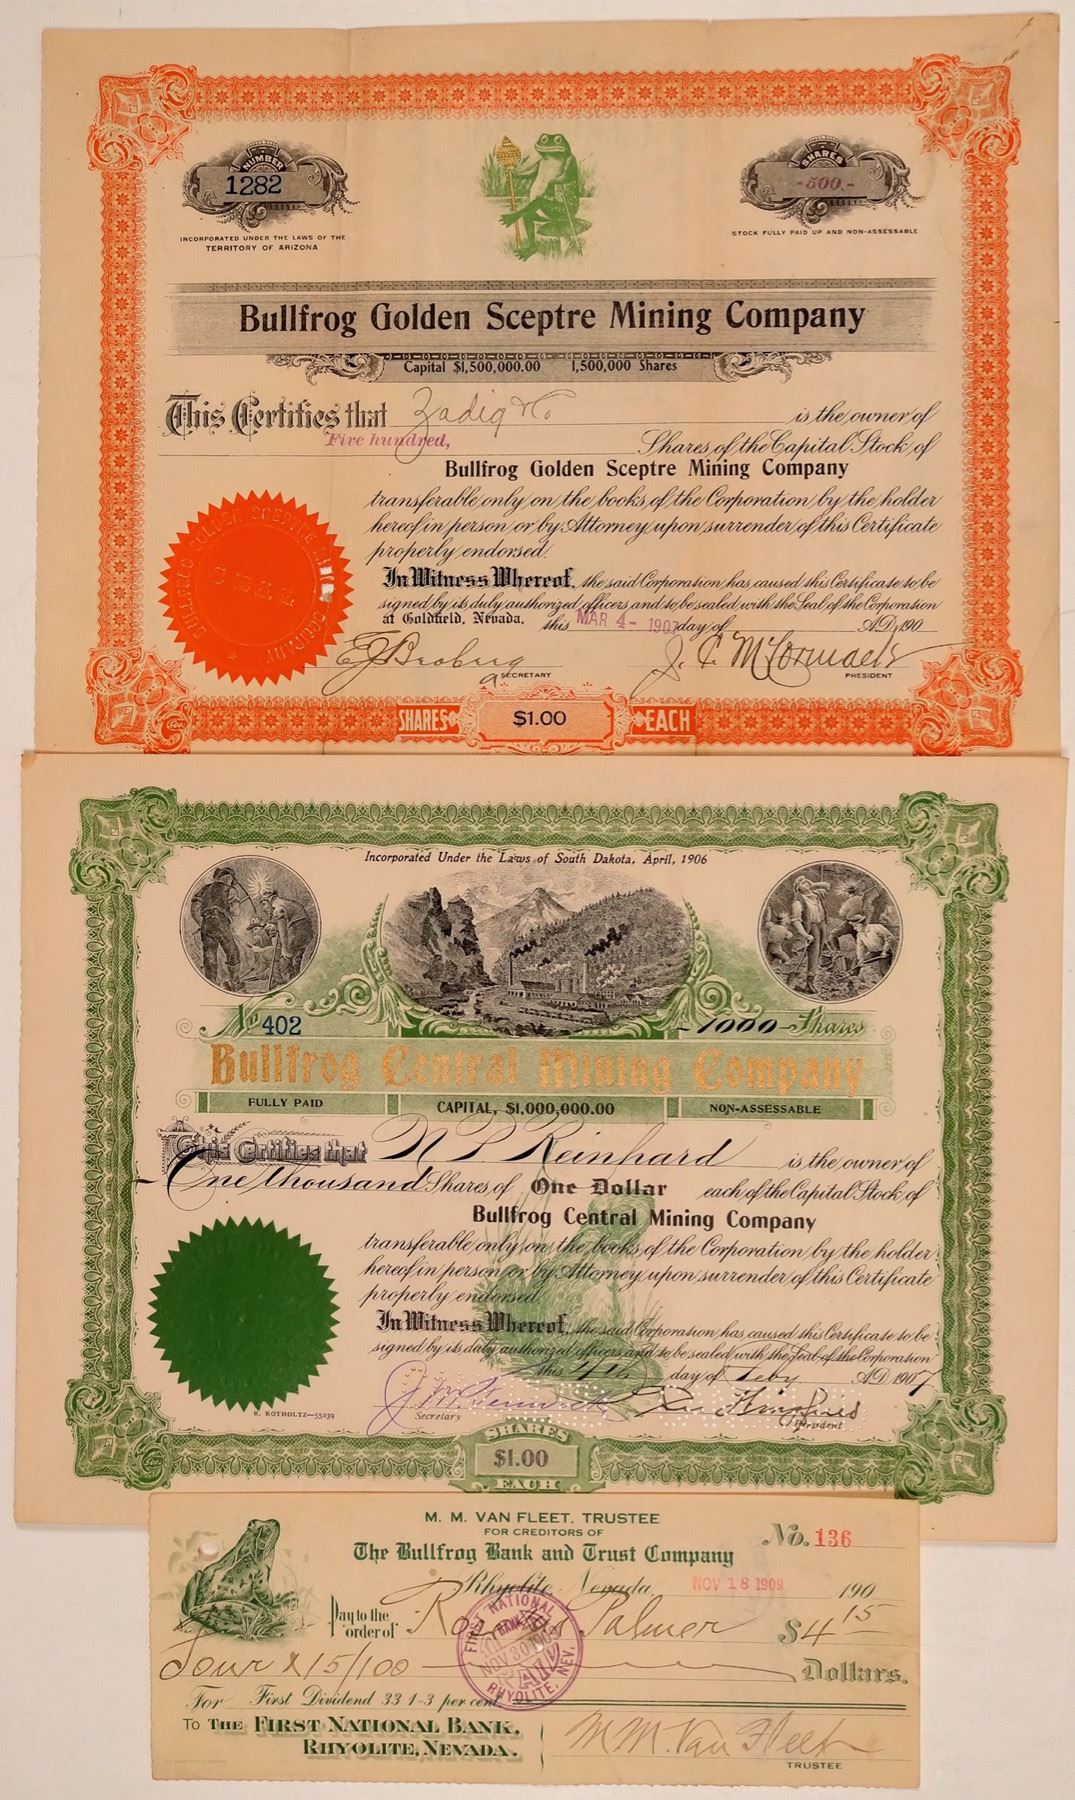 NUMBER
1282
SHARES
-500.-
INCORPORATED UNDER THE LAWS OF THE
TERRITORY OF ARIZONA
STOCK FULLY PAID UP AND NON-ASSESSABLE
Bullfrog Golden Sceptre Mining Company
Capital $1,500,000.00 1,500,000 Shares
This Certifies that Zadig & Co is the owner of
Five hundred, Shares of the Capital Stock of
Bullfrog Golden Sceptre Mining Company
transferable only on the books of the Corporation by the holder
hereof in person or by Attorney upon surrender of this Certificate
properly endorsed.
In Witness Whereof, the said Corporation has caused this Certificate to be
signed by its duly authorized officers and to be sealed with the Seal of the Corporation
at Goldfield, Nevada, this MAR 4 - 1907 day of A.D. 190
BULLFROG GOLDEN SCEPTRE MINING COMPANY
SECRETARY
PRESIDENT
SHARES $1.00 EACH
Incorporated Under the Laws of South Dakota, April, 1906
No 402 -1000- Shares
Bullfrog Central Mining Company
FULLY PAID CAPITAL, $1,000,000.00 NON-ASSESSABLE
This Certifies that N P Reinhard is the owner of
One thousand Shares of One Dollar each of the Capital Stock of
Bullfrog Central Mining Company
transferable only on the books of the Corporation by the holder
hereof in person or by Attorney upon surrender of this Certificate
properly endorsed.
In Witness Whereof, the said Corporation has caused this Certificate to be
signed by its duly authorized officers and to be sealed with the Seal of the Corporation
this 4th day of Feby A.D. 1907
Secretary
President
B. ROTHOLTZ—55039
SHARES
$1.00
EACH
M. M. VAN FLEET, TRUSTEE
FOR CREDITORS OF
The Bullfrog Bank and Trust Company
No. 136
Rhyolite, Nevada NOV 18 1909 190
Pay to the
order of Palmer $4 15
Four & 15/100 Dollars.
FIRST NATIONAL BANK
PAID
NOV 30 1909
RHYOLITE, NEV.
For First Dividend 33 1-3 per cent.
To THE FIRST NATIONAL BANK,
RHYOLITE, NEVADA.
M M. Van Fleet
TRUSTEE